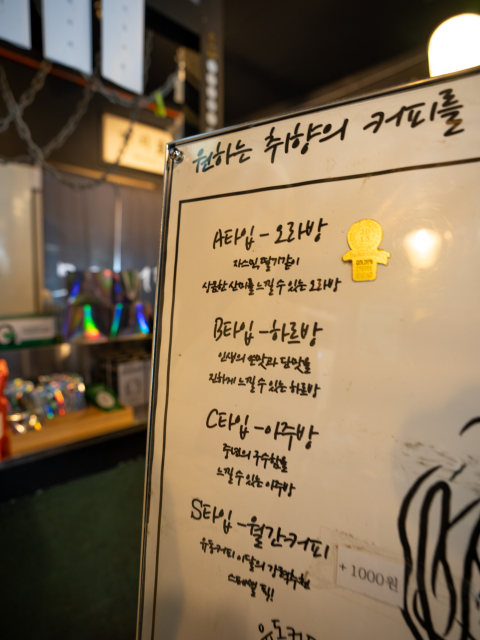 원하는 취향의 커피를
A타입 - 오라방
자스민, 딸기같이
상큼한 산미를 느낄 수 있는 오라방
B타입 - 하르방
인생의 쓴맛과 단맛을
진하게 느낄 수 있는 하르방
C타입 - 아주방
주변의 구수함을
느낄 수 있는 아주방
S타입 - 월간커피
유동커피 이달의 강력추천
스페셜 픽!
+ 1000원